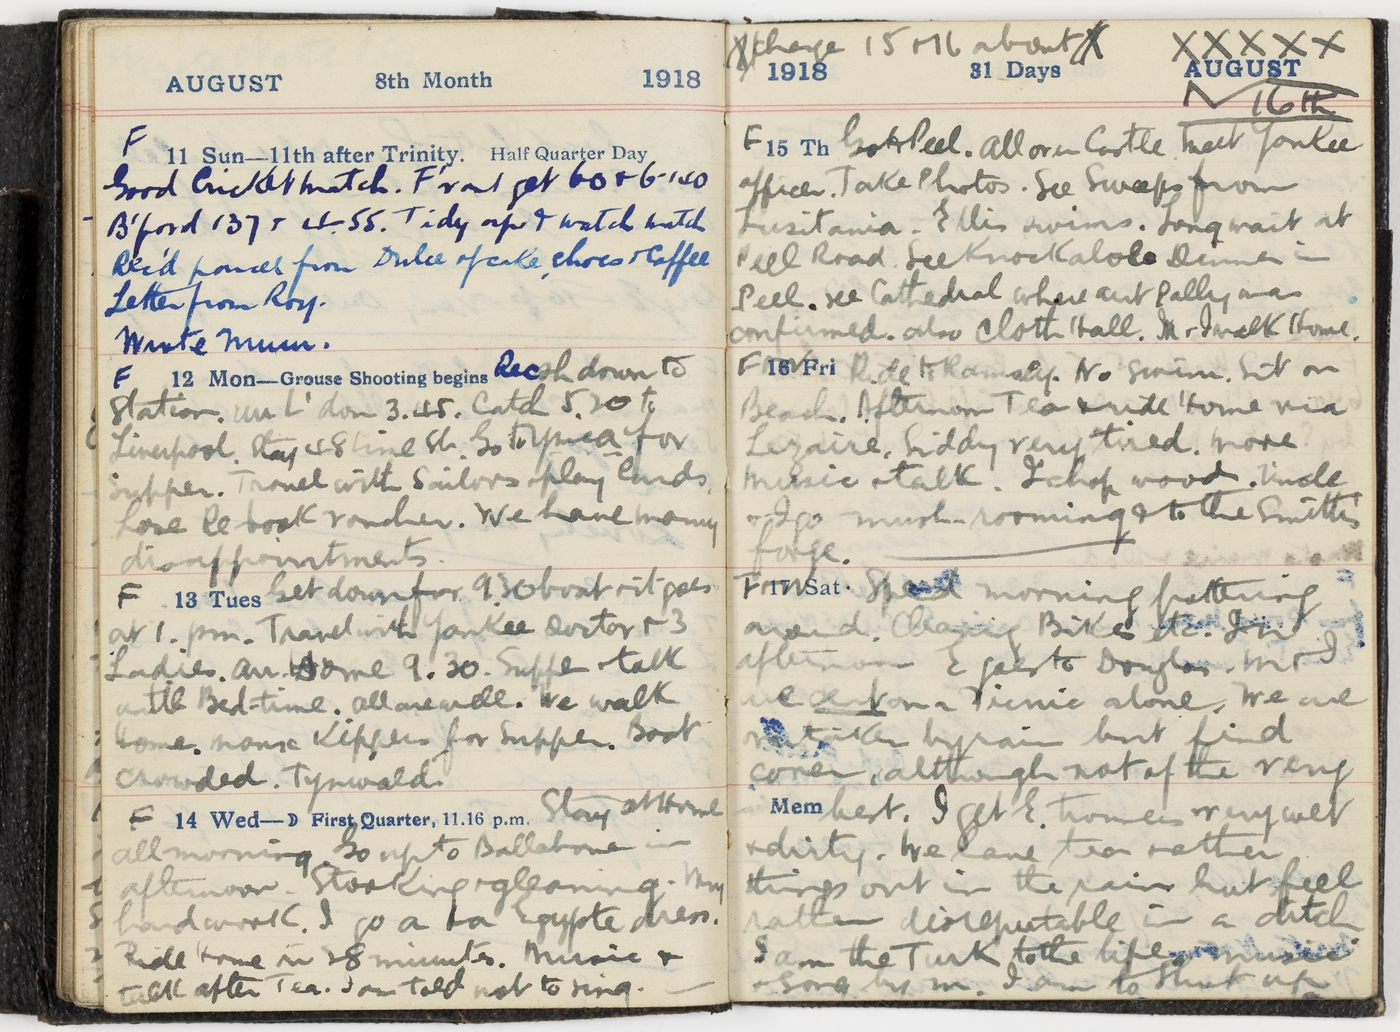 AUGUST 8th Month 1918
F
11 Sun—11th after Trinity. Half Quarter Day
Good Cricket match. F'rant get 60 & 6-140
B'ford 137 & 4-55. Tidy up & watch match
Rec'd parcel from Dulce of cake, shoes & Coffee
Letter from Roy.
Wrote Mum.
F 12 Mon—Grouse Shooting begins Rush down to
Station. arr L'don 3.45. Catch 5.20 to
Liverpool. Stay 48 Lime St. Go to for
supper. Travel with Sailors & play Cards.
Lose Re-book voucher. We have many
disappointments.
F 13 Tues Get down for 9.30 boat & it goes
at 1. pm. Travel with Yankee Doctor & 3
Ladies. arr. Home 9.30. Supper & talk
until Bed-time. all are well. We walk
Home. Kippers for Supper. Boat
crowded. Tynwald.
F 14 Wed— First Quarter, 11.16 p.m. Stay at Home
all morning. Go up to Ballabone in
afternoon. Stooking & gleaning. Very
hard work. I go a la Egypte dress.
Ride Home in 28 minutes. Music &
talk after Tea. I am told not to sing.
X change 15 & 16 about X XXXXX
1918 31 Days AUGUST
16th
F 15 Th Go to Peel. All over Castle. Meet Yankee
officer. Take Photos. See Sweeps from
Lusitania. Ellis swims. Long wait at
Peel Road. See Knockaloe Dinner in
Peel. See Cathedral where aunt Pally was
confirmed. also Cloth Hall. M & I walk Home.
F 16 Fri Ride to Ramsey. No Swim. Sit on
Beach. Afternoon Tea & ride Home via
Lezaire. Siddy very tired. more
music & talk. I chop wood. Uncle
& I go mushrooming & to the Smith's
forge.
17 Sat. Spent morning pottering
around. Cleaning Bikes etc. In
afternoon E goes to Douglas. M & I
we went on a Picnic alone. We are
by rain but find
cover, although not of the very
Mem best. I get E. trousers very wet
& dirty. We have tea & other
things out in the rain but feel
rather disreputable in a ditch
I am the Turk to the life music
& Song by m. I am to Shut up